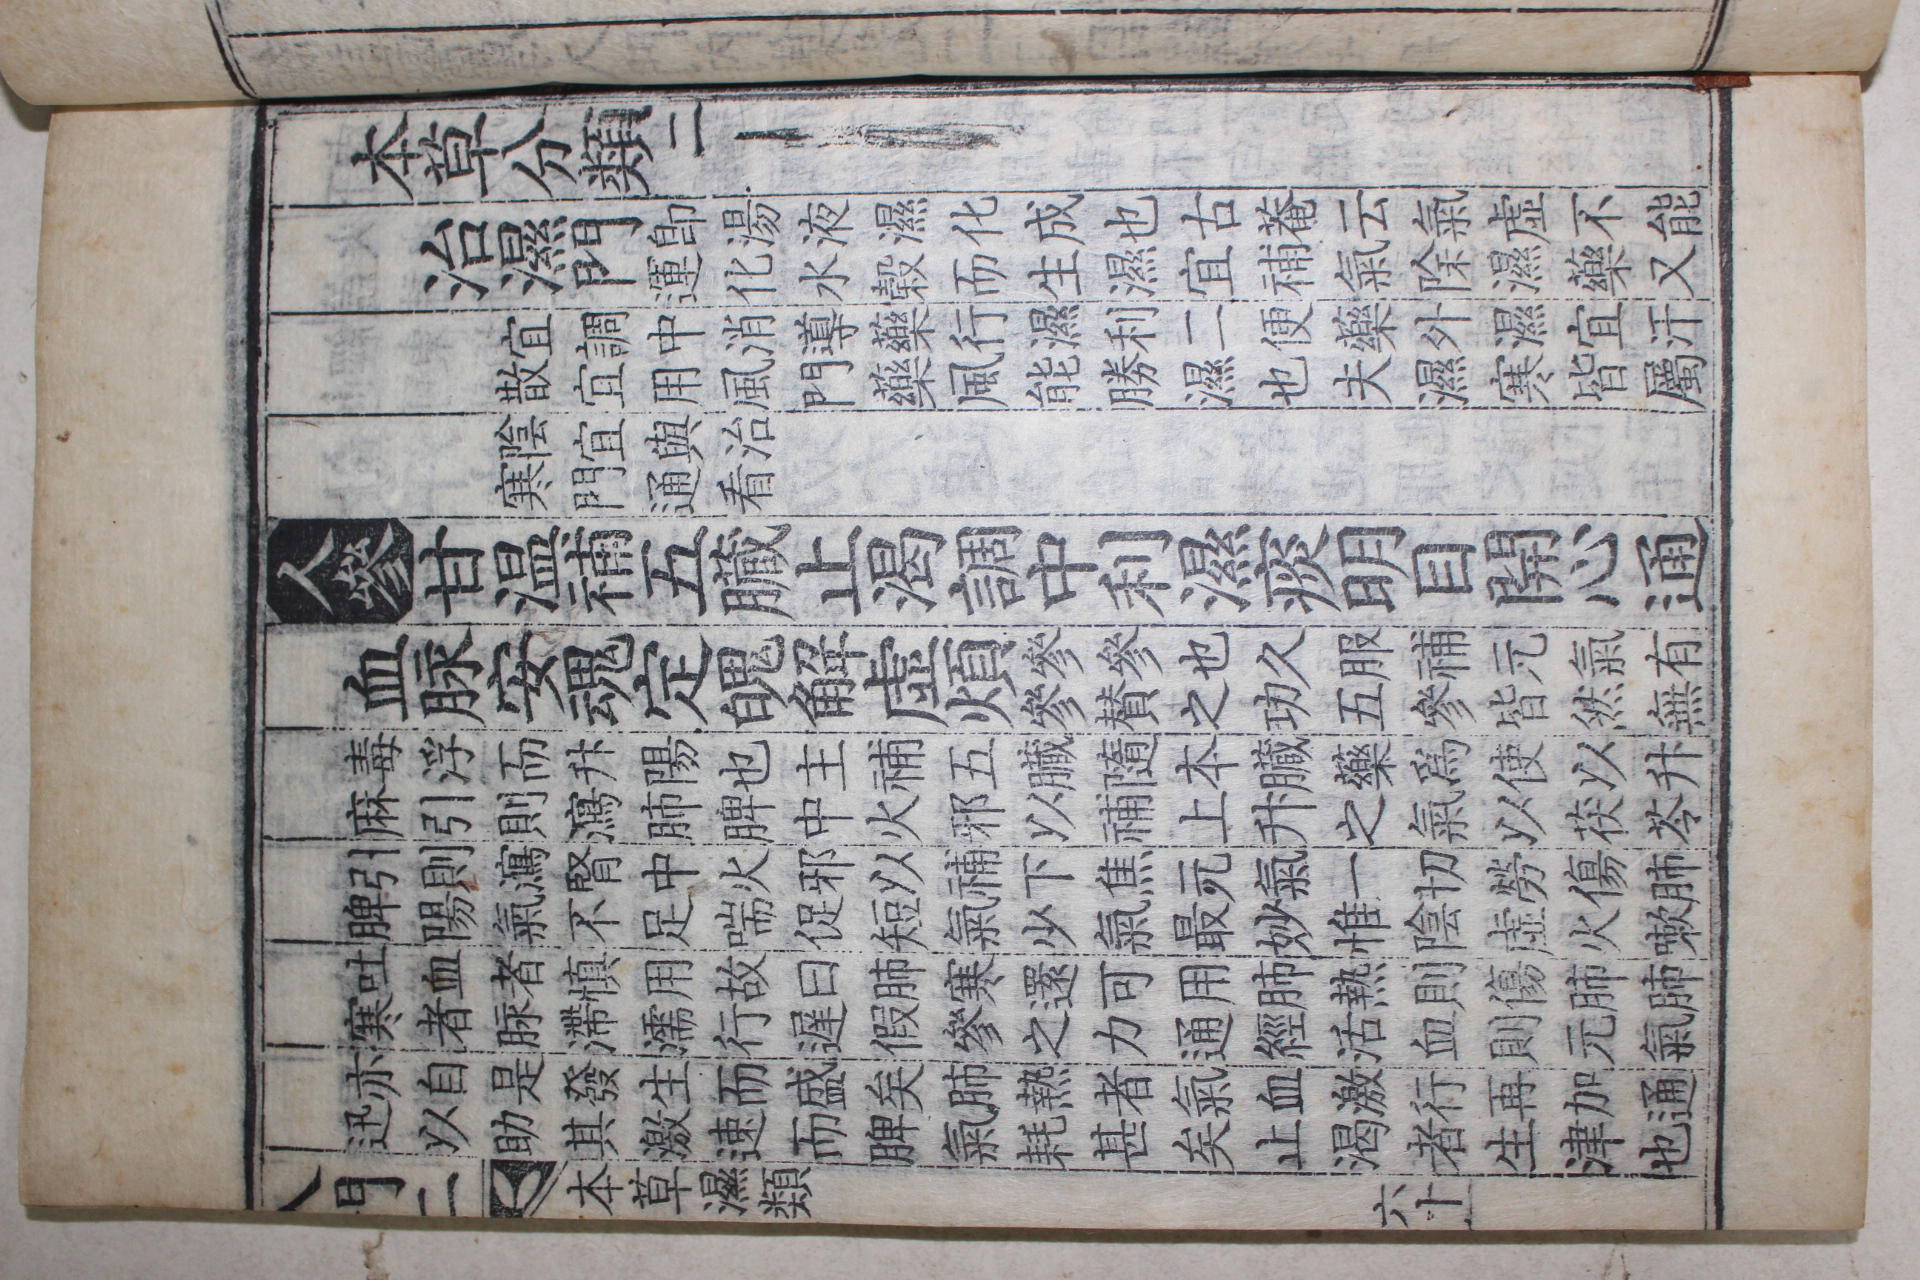 本草分類二
治濕門
卽湯液濕化成也古菴云氣虛不能
運化水穀而生濕宜補氣除濕藥又
宜調中消導藥行濕利二便藥外濕宜汗
散宜用風門藥風能勝濕也夫濕寒皆屬
陰宜與治
寒門通看
人參甘温補五臟止渴調中利濕痰明目開心通
血脉安魂定魄解虛煩
參參也久服補元氣有
參賛之功五參皆然無
毒浮而升陽也主補五臟隨本臟藥爲使以升
麻引則瀉肺脾中火邪以補上升之氣以茯苓
引則瀉腎中火邪以補下焦元氣一切勞傷肺
脾陽氣不足喘促短氣少氣最妙惟陰虛火嗽
吐血者慎用故曰肺寒還可用肺熱則傷肺肺
寒者脉滯濡行遲假參之力通經活血則元氣
亦自是發生而盛矣肺熱者氣血激行再加通
迅以助其激速而脾氣耗甚矣止渴者生津也
入門二
本草濕類
六十